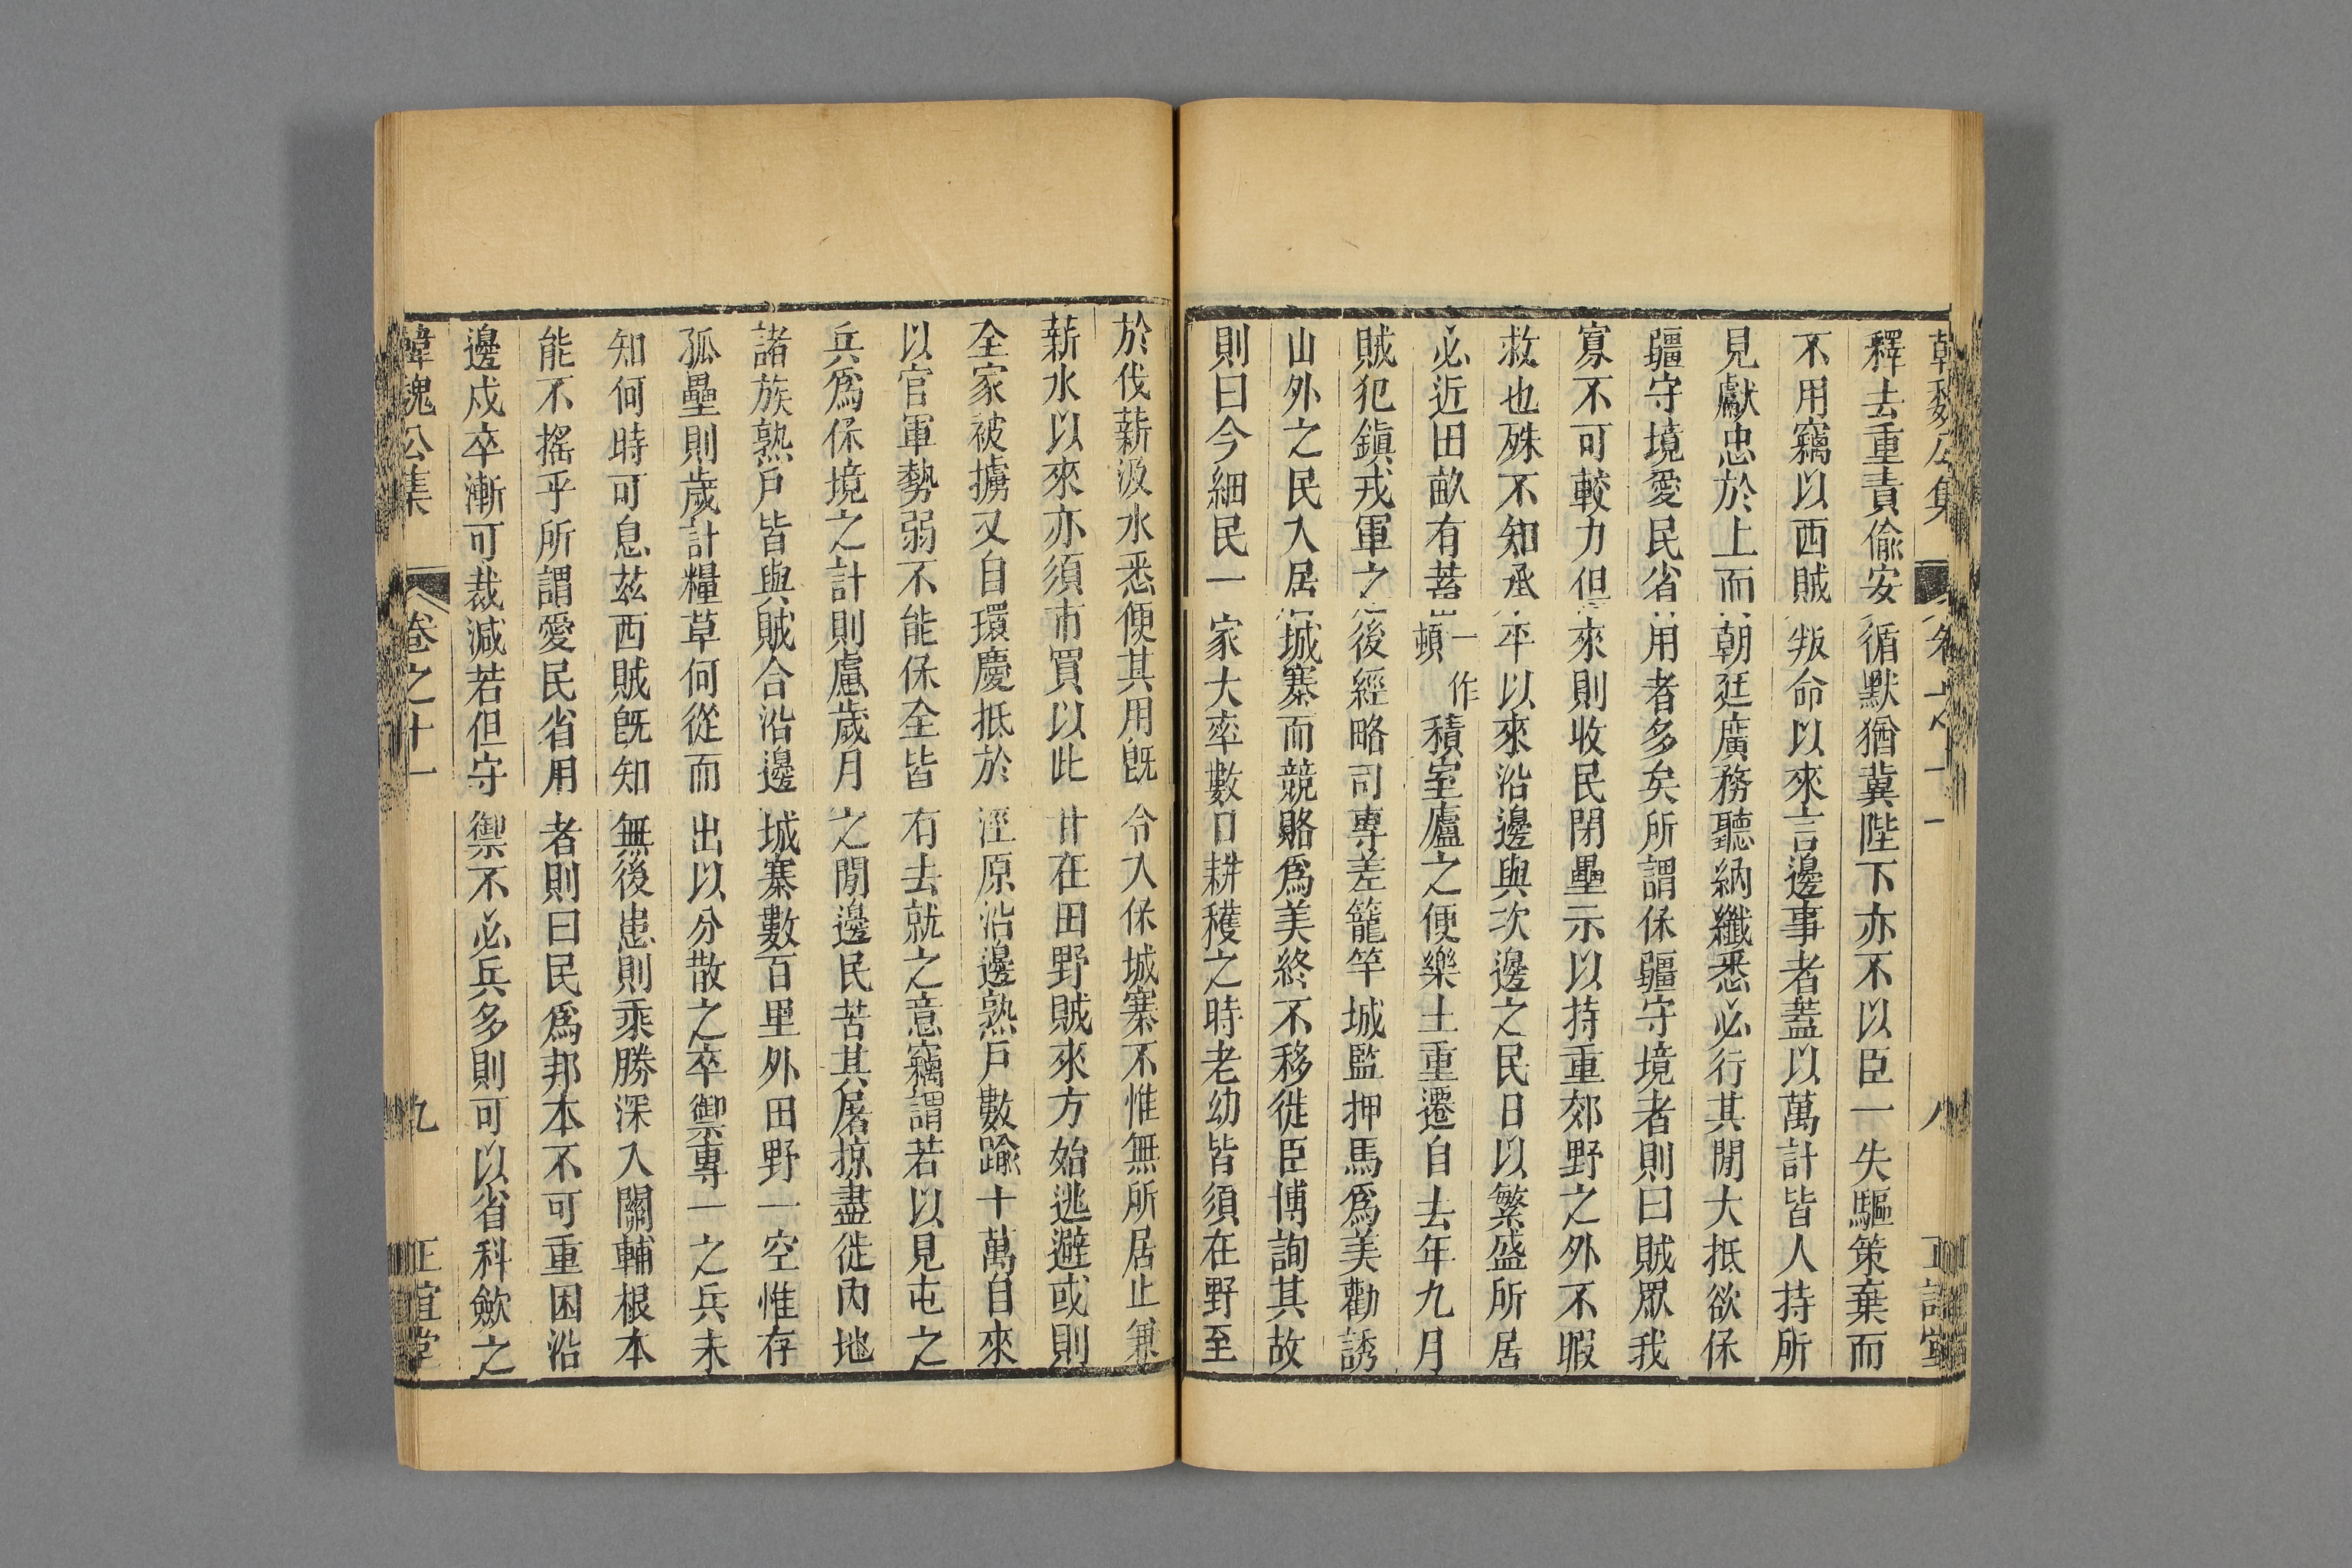 釋去重責偷安循默猶冀陛下亦不以臣一失驅策棄而
不用竊以西賊叛命以來言邊事者蓋以萬計皆人持所
見獻忠於上而朝廷廣務聽納纖悉必行其閒大抵欲保
疆守境愛民省用者多矣所謂保疆守境者則曰賊眾我
寡不可較力但來則收民閉壘示以持重郊野之外不暇
救也殊不知承平以來沿邊與次邊之民日以繁盛所居
必近田畝有菩一作頓積室廬之便樂土重遷自去年九月
賊犯鎮戎軍之後經略司專差籠竿城監押馬爲美勸誘
山外之民入居城寨而競賂爲美終不移徙臣博詢其故
則曰今細民一家大率數口耕穫之時老幼皆須在野至
於伐薪汲水悉便其用旣令入保城寨不惟無所居止兼
薪水以來亦須市買以此甘在田野賊來方始逃避或則
全家被擄又自環慶抵於涇原沿邊熟戶數踰十萬自來
以官軍勢弱不能保全皆有去就之意竊謂若以見屯之
兵爲保境之計則慮歲月之閒邊民苦其屠掠盡徙內地
諸族熟戶皆與賊合沿邊城寨數百里外田野一空惟存
孤壘則歲計糧草何從而出以分散之卒禦專一之兵未
知何時可息茲西賊旣知無後患則乘勝深入關輔根本
能不搖乎所謂愛民省用者則曰民爲邦本不可重困沿
邊戍卒漸可裁減若但守禦不必兵多則可以省科斂之
韓魏公集 卷之十一 九 正誼堂